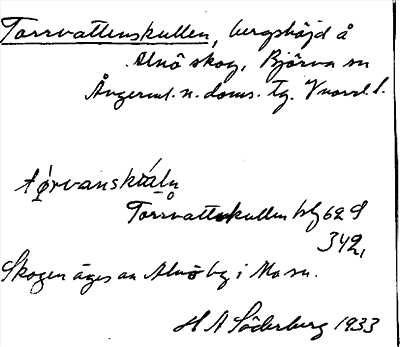 Torrvattenskullen, bergshöjd å
Alnö skog, Björna sn
Ångerml. n. doms. tg. V norrl. l.
tǫrvanskúaln
Torrvattskullen blg 62 S
342,
Skogen äges av Alnö by i Mo sn.
H A Söderberg 1933